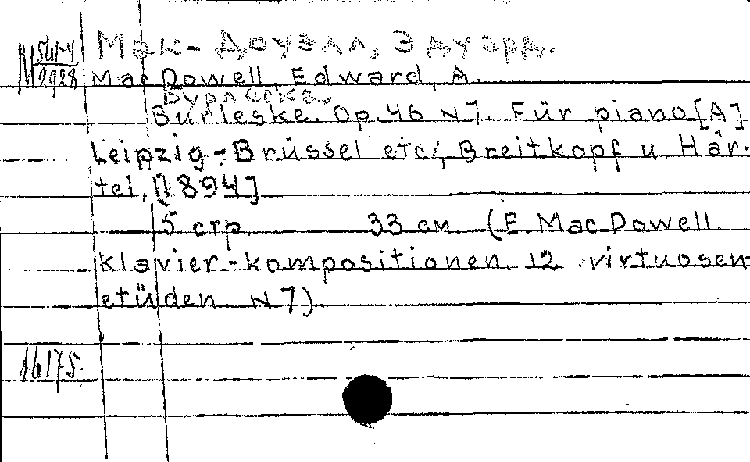 Мак-Доуэлл, Эдуард.
MacDowell, Edward, A.
Бурлеска.
Burleske. Op. 46 N 7. Für piano [A]
Leipzig-Brüssel etc., Breitkopf u Här-
tel, [1894]
5 стр. 33 см (E. MacDowell.
Klavier-kompositionen 12 virtuosen
etüden N 7).
16175.